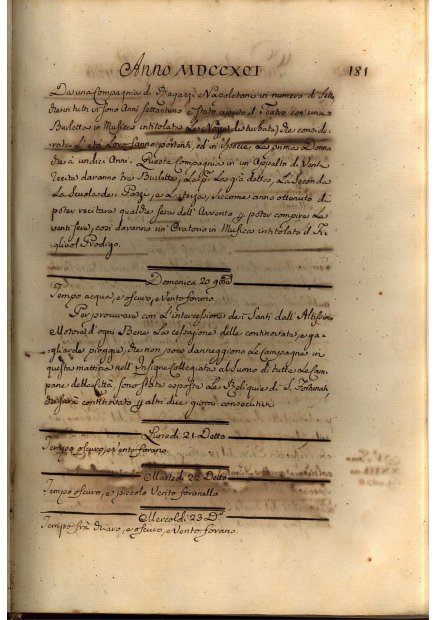 Anno MDCCXCI
181
Da una Compagnia di Ragazzi Napoletani in numero di
che in tutti sono Anni settantuno è stato aperto il Teatro con una
Burletta in Musica intitolata Le Nozze disturbate, che consi de-
rata L'età Loro fanno portenti, ed in specie La prima Donna
che à undici Anni. Questa Compagnia in un Appalto di Venti
recite daranno tre Burlette, La p.ª La già detta, La Seconda
La Scuola dei Pazzi, e La terza, siccome anno ottenuto di
poter recitare qualche sera dell'Avvento p poter compire Le
venti sere, così daranno un'Oratorio in Musica intitolato il Fi-
gliuol Prodigo.
Domenica 20
Tempo acqua, e oscuro, e Vento forano
Per procurare con L'intercessione dei Santi dall'Altissimo
d'ogni Bene La cessazione delle continovate, e ga-
gliarde pioggie, che non poco danneggiono Le Campagne in
questa mattina nell'Insigne Collegiata al suono di tutte Le Cam-
pane della Città, sono state esposte Le Reliquie di S.
che sarà continovato p altri due giorni consecutivi
Lunedì 21 Detto
Tempo oscuro, e Vento forano.
Martedì 22 Detto
Tempo oscuro, e piccolo Vento foranello
Mercoldì 23 D.º
Tempo frà chiaro, e oscuro, e Vento forano.